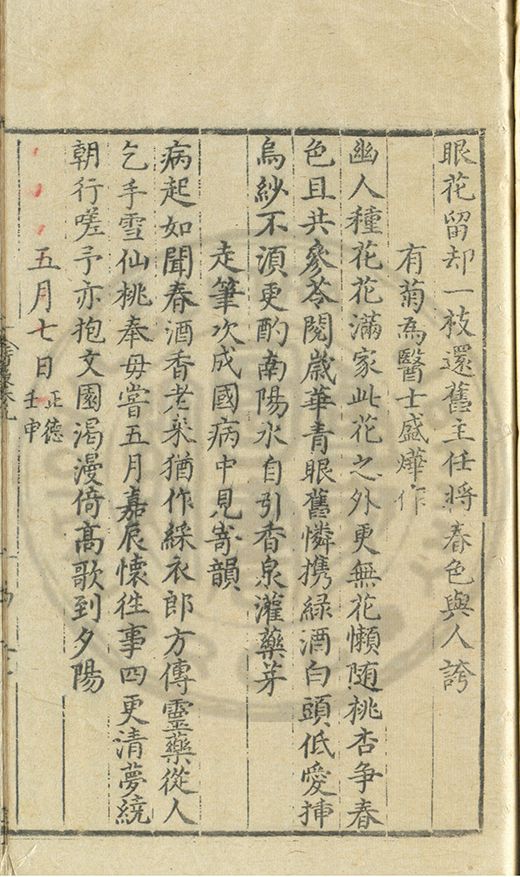 眼花留却一枝還舊主任將春色與人誇
有菊為醫士盛燁作
幽人種花花滿家此花之外更無花懶随桃杏争春
色且共參苓閱歲華青眼舊憐携緑酒白頭低愛挿
烏紗不須更酌南陽水自引香泉灌藥芽
走筆次成國病中見寄韻
病起如聞春酒香老来猶作綵衣郎方傳靈藥從人
乞手雪仙桃奉母嘗五月嘉辰懐徃事四更清夢繞
朝行嗟予亦抱文園渴漫倚髙歌到夕陽
五月七日正德壬申